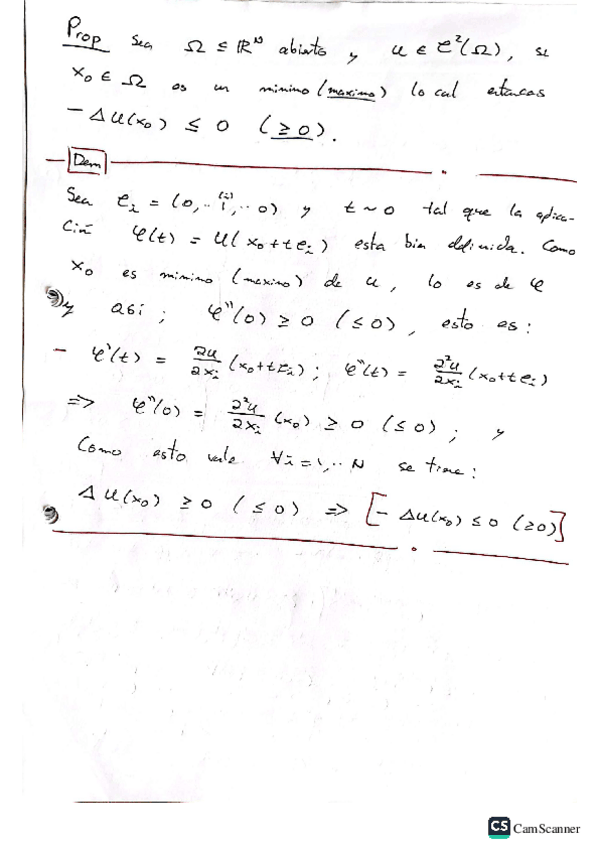 Prop Sea Ω ⊆ ℝᴺ abierto y u ∈ C²(Ω), si
x₀ ∈ Ω es un minimo (maximo) local entonces
- Δu(x₀) ≤ 0 (≥ 0).
Dem
Sea eᵢ = (0,..1⁽ⁱ⁾,..0) y t ~ 0 tal que la aplica-
ción φ(t) = u(x₀+teᵢ) esta bien definida. Como
x₀ es minimo (maximo) de u, lo es de φ
y asi; φ''(0) ≥ 0 (≤ 0), esto es:
- φ'(t) = ∂u/∂xᵢ (x₀+teᵢ); φ''(t) = ∂²u/∂xᵢ (x₀+teᵢ)
=> φ''(0) = ∂²u/∂xᵢ (x₀) ≥ 0 (≤ 0); y
Como esto vale ∀i=1,..N se tiene:
Δu(x₀) ≥ 0 (≤ 0) => [- Δu(x₀) ≤ 0 (≥0)]
CS CamScanner